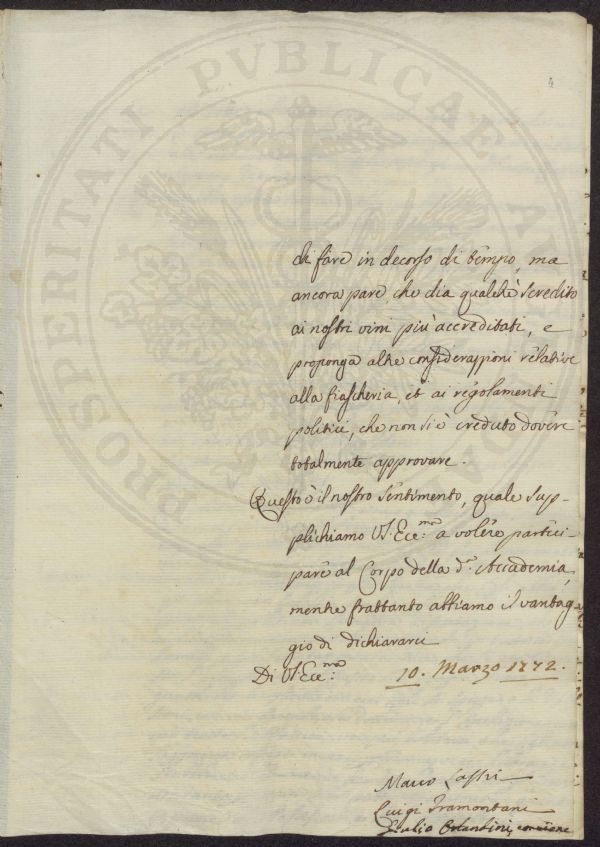 PROSPERITATI PVBLICAE AVGENDAE
4
di fare in decorso di tempo, ma
ancora pare, che dia qualche scredito
ai nostri vini più accreditati, e
proponga altre considerazioni relative
alla fiascheria, et ai regolamenti
politici, che non si è creduto dovere
totalmente approvare.
Questo è il nostro sentimento, quale sup-
plichiamo V. Ecc.ma a volere parteci-
pare al Corpo della d.a Accademia,
mentre frattanto abbiamo il vantag-
gio di dichiararci
Di V. Ecc.ma 10. Marzo 1772.
Marco Lastri
Luigi Tramontani
Giulio Orlandini,